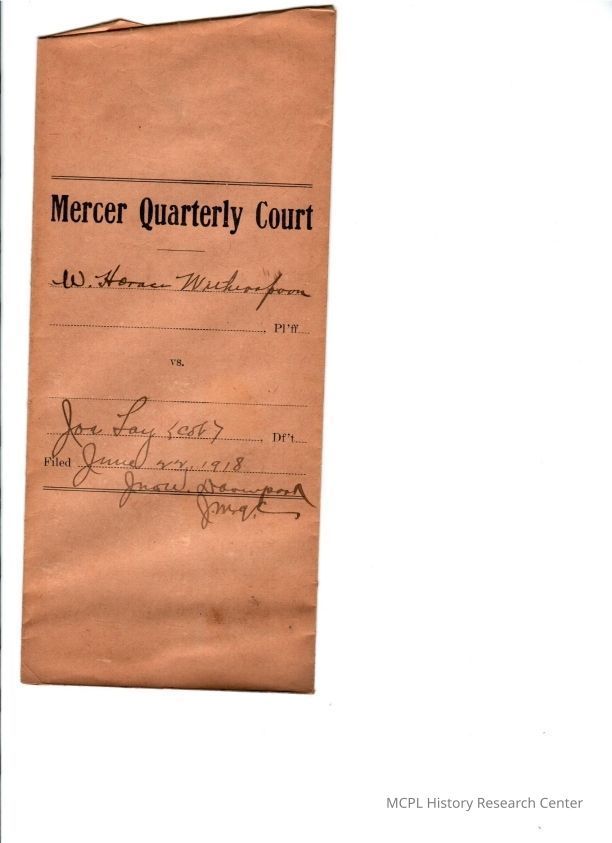 Mercer Quarterly Court
W. Horace Witherspoon
Pl'ff
vs.
Joe Lay (col)
Df't.
Filed June 22, 1918
Jno. W. Davenport
J.M.Q.C.
MCPL History Research Center